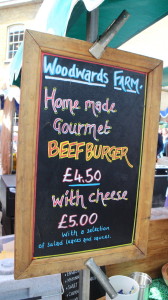 Woodwards FARM.
Home made
Gourmet
BEEFBURGER
£4.50
with cheese
£5.00
With a selection
of salad leaves and sauces.